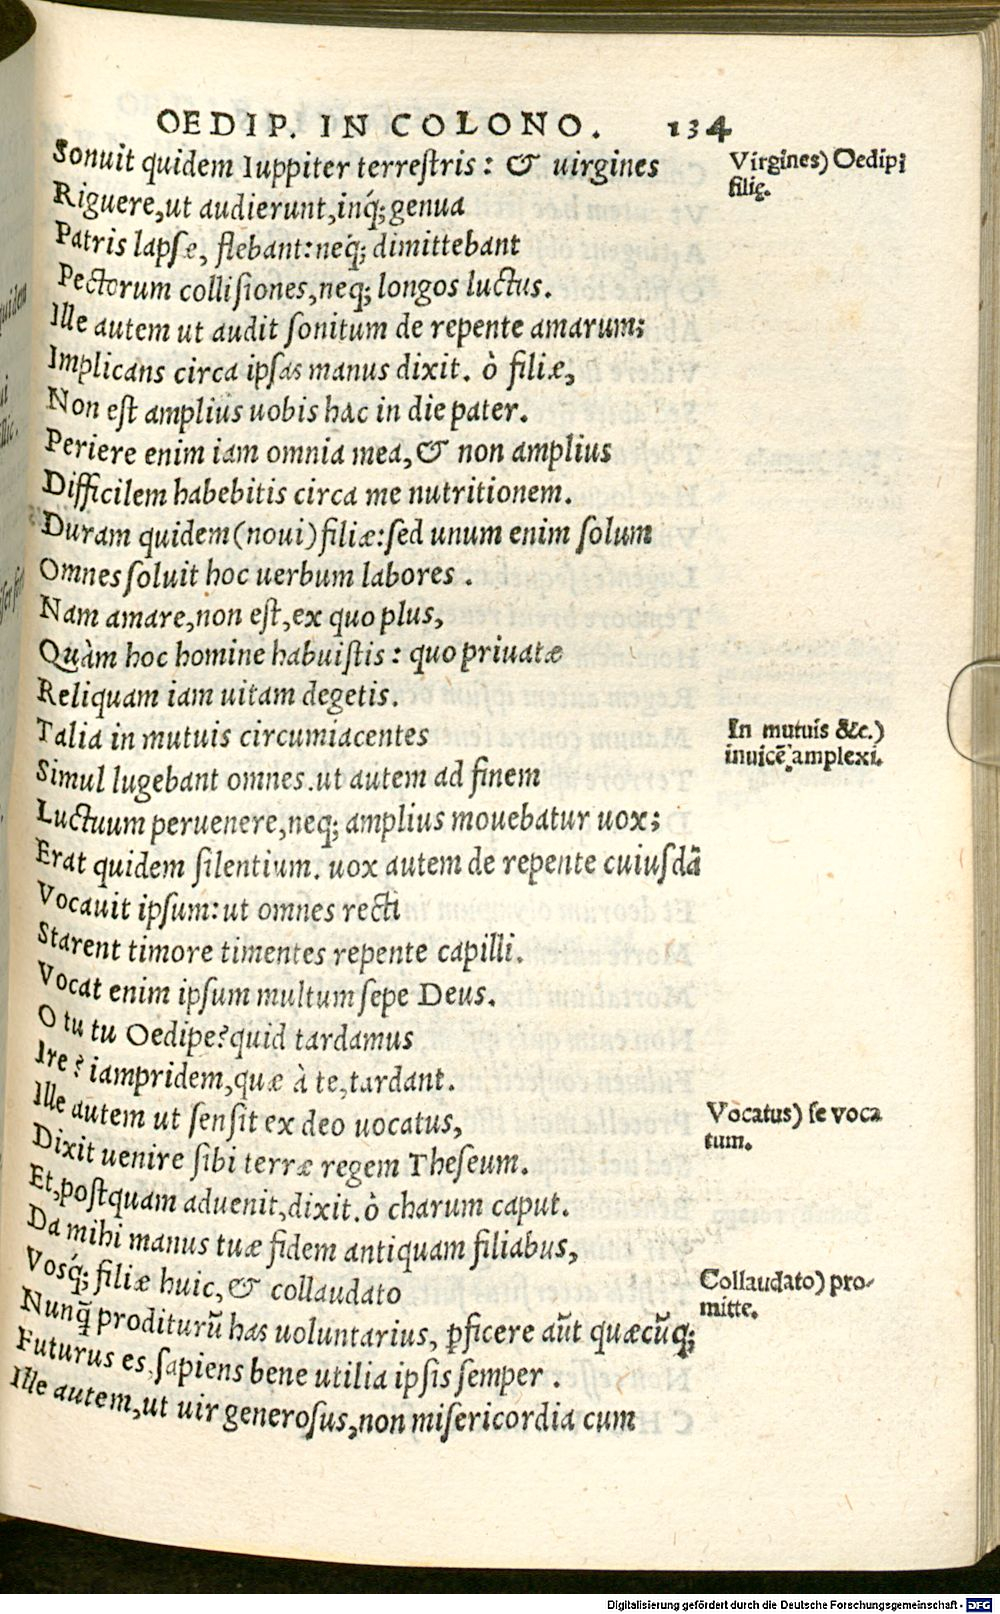 OEDIP. IN COLONO. 134
Sonuit quidem Iuppiter terreſtris: & uirgines
Virgines) Oedipi
filię.
Riguere,ut audierunt,inq́;genua
Patris lapſæ, flebant:neq́; dimittebant
Pectorum colliſiones,neq; longos luctus.
Ille autem ut audit ſonitum de repente amarum;
Implicans circa ipſas manus dixit. ò filiæ,
Non eſt amplius uobis hac in die pater.
Periere enim iam omnia mea,& non amplius
Difficilem habebitis circa me nutritionem.
Duram quidem(noui)filiæ:ſed unum enim ſolum
Omnes ſoluit hoc uerbum labores .
Nam amare,non eſt,ex quo plus,
Quàm hoc homine habuiſtis: quo priuatæ
Reliquam iam uitam degetis.
Talia in mutuis circumiacentes
In mutuis &c.)
inuicē amplexi.
Simul lugebant omnes.ut autem ad finem
Luctuum peruenere,neq; amplius mouebatur uox;
Erat quidem ſilentium. uox autem de repente cuiuſdã
Vocauit ipſum:ut omnes recti
Starent timore timentes repente capilli.
Vocat enim ipſum multum ſepe Deus.
O tu tu Oedipe?quid tardamus
Ire? iampridem,quæ à te,tardant.
Ille autem ut ſenſit ex deo uocatus,
Vocatus) ſe voca
tum.
Dixit uenire ſibi terræ regem Theſeum.
Et,poſtquam aduenit,dixit.ò charum caput.
Da mihi manus tuæ fidem antiquam filiabus,
Vosq́; filiæ huic,& collaudato
Collaudato) pro-
mitte.
Nunq̃ proditurũ has uoluntarius, ꝑficere aũt quæcũq;
Futurus es,ſapiens bene utilia ipſis ſemper .
Ille autem,ut uir generoſus,non miſericordia cum
Digitalisierung gefördert durch die Deutsche Forschungsgemeinschaft - DFG